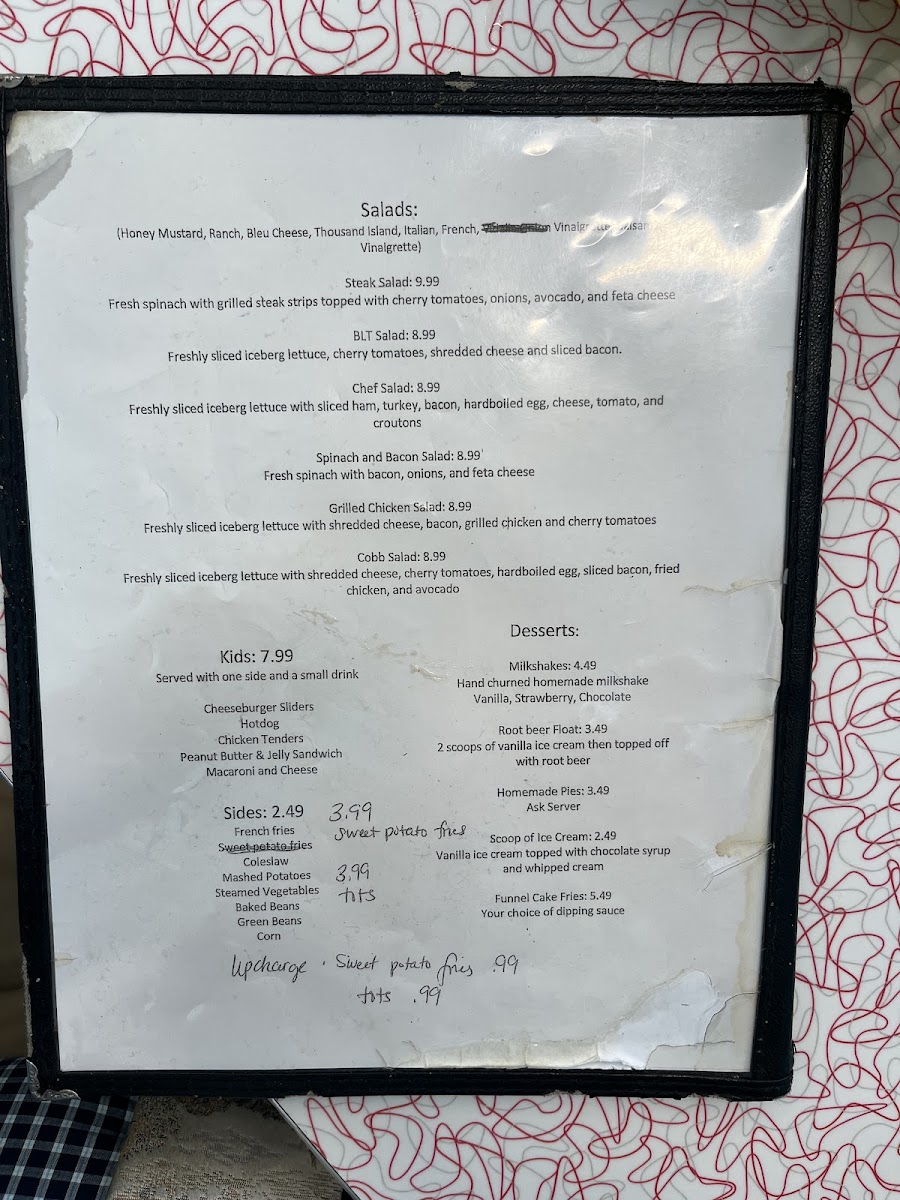 Salads:
(Honey Mustard, Ranch, Bleu Cheese, Thousand Island, Italian, French, Vinaigrette
Vinalgrette)
Steak Salad: 9.99
Fresh spinach with grilled steak strips topped with cherry tomatoes, onions, avocado, and feta cheese
BLT Salad: 8.99
Freshly sliced iceberg lettuce, cherry tomatoes, shredded cheese and sliced bacon.
Chef Salad: 8.99
Freshly sliced iceberg lettuce with sliced ham, turkey, bacon, hardboiled egg, cheese, tomato, and
croutons
Spinach and Bacon Salad: 8.99
Fresh spinach with bacon, onions, and feta cheese
Grilled Chicken Salad: 8.99
Freshly sliced iceberg lettuce with shredded cheese, bacon, grilled chicken and cherry tomatoes
Cobb Salad: 8.99
Freshly sliced iceberg lettuce with shredded cheese, cherry tomatoes, hardboiled egg, sliced bacon, fried
chicken, and avocado
Kids: 7.99
Served with one side and a small drink
Cheeseburger Sliders
Hotdog
Chicken Tenders
Peanut Butter & Jelly Sandwich
Macaroni and Cheese
Sides: 2.49
French fries
Sweet potato fries
Coleslaw
Mashed Potatoes
Steamed Vegetables
Baked Beans
Green Beans
Corn
3.99
sweet potato fries
3.99
tots
Upcharge · Sweet potato fries .99
tots .99
Desserts:
Milkshakes: 4.49
Hand churned homemade milkshake
Vanilla, Strawberry, Chocolate
Root beer Float: 3.49
2 scoops of vanilla ice cream then topped off
with root beer
Homemade Pies: 3.49
Ask Server
Scoop of Ice Cream: 2.49
Vanilla ice cream topped with chocolate syrup
and whipped cream
Funnel Cake Fries: 5.49
Your choice of dipping sauce